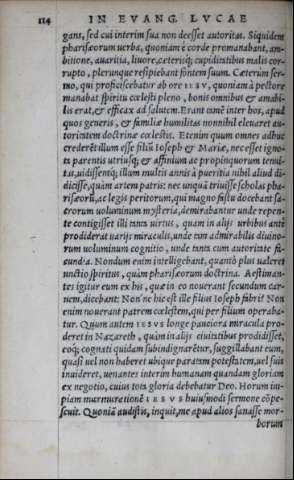 114 IN EVANG. LVCAE
gans, sed cui interim sua non deesset autoritas. Siquidem
pharisæorum uerba, quoniam è corde premanabant, am-
bitione, auaritia, liuore, cæterisq; cupiditatibus malis cor-
rupto, plerunque resipiebant fontem suum. Cæterùm ser-
mo, qui proficiscebatur ab ore IESV, quoniam à pectore
manabat spiritu cœlesti pleno, bonis omnibus & amabi-
lis erat, & efficax ad salutem. Erant tamẽ inter hos, apud
quos generis, & familiæ humilitas nonnihil eleuaret au-
toritatem doctrinæ cœlestis. Etenim quum omnes adhuc
crederẽt illum esse filiũ Ioseph & Mariæ, nec esset igno-
ta parentis utriusq; & affinium ac propinquorum tenui-
tas, uidissentq; illum multis annis à pueritia nihil aliud di-
dicisse, quàm artem patris: nec unquã triuisse scholas pha-
risæorũ, ac legis peritorum, qui magno fastu docebant sa-
crorum uoluminum mysteria, demirabantur unde repen-
te contigisset illi tanta uirtus, quam in alijs urbibus ante
prodiderat uarijs miraculis, unde tam admirabilis diuino-
rum uoluminum cognitio, unde tanta cum autoritate fa-
cundia. Nondum enim intelligebant, quantò plus ualeret
unctio spiritus, quàm pharisæorum doctrina. Aestiman-
tes igitur eum ex his, quæ in eo nouerant secundum car-
nem, dicebant: Non'ne hic est ille filius Ioseph fabri? Non
enim nouerant patrem cœlestem, qui per filium operaba-
tur. Quum autem IESVS longe pauciora miracula pro-
deret in Nazareth, quàm in alijs ciuitatibus prodidisset,
eoq; cognati quidam subindignarẽtur, suggillabant eum,
quasi uel non haberet ubique paratam potestatem, uel suis
inuideret, uenantes interim humanam quandam gloriam
ex negotio, cuius tota gloria debebatur Deo. Horum im-
piam murmurationẽ IESVS huiusmodi sermone cõpe-
scuit. Quoniã audistis, inquit, me apud alios sanasse mor-
borum